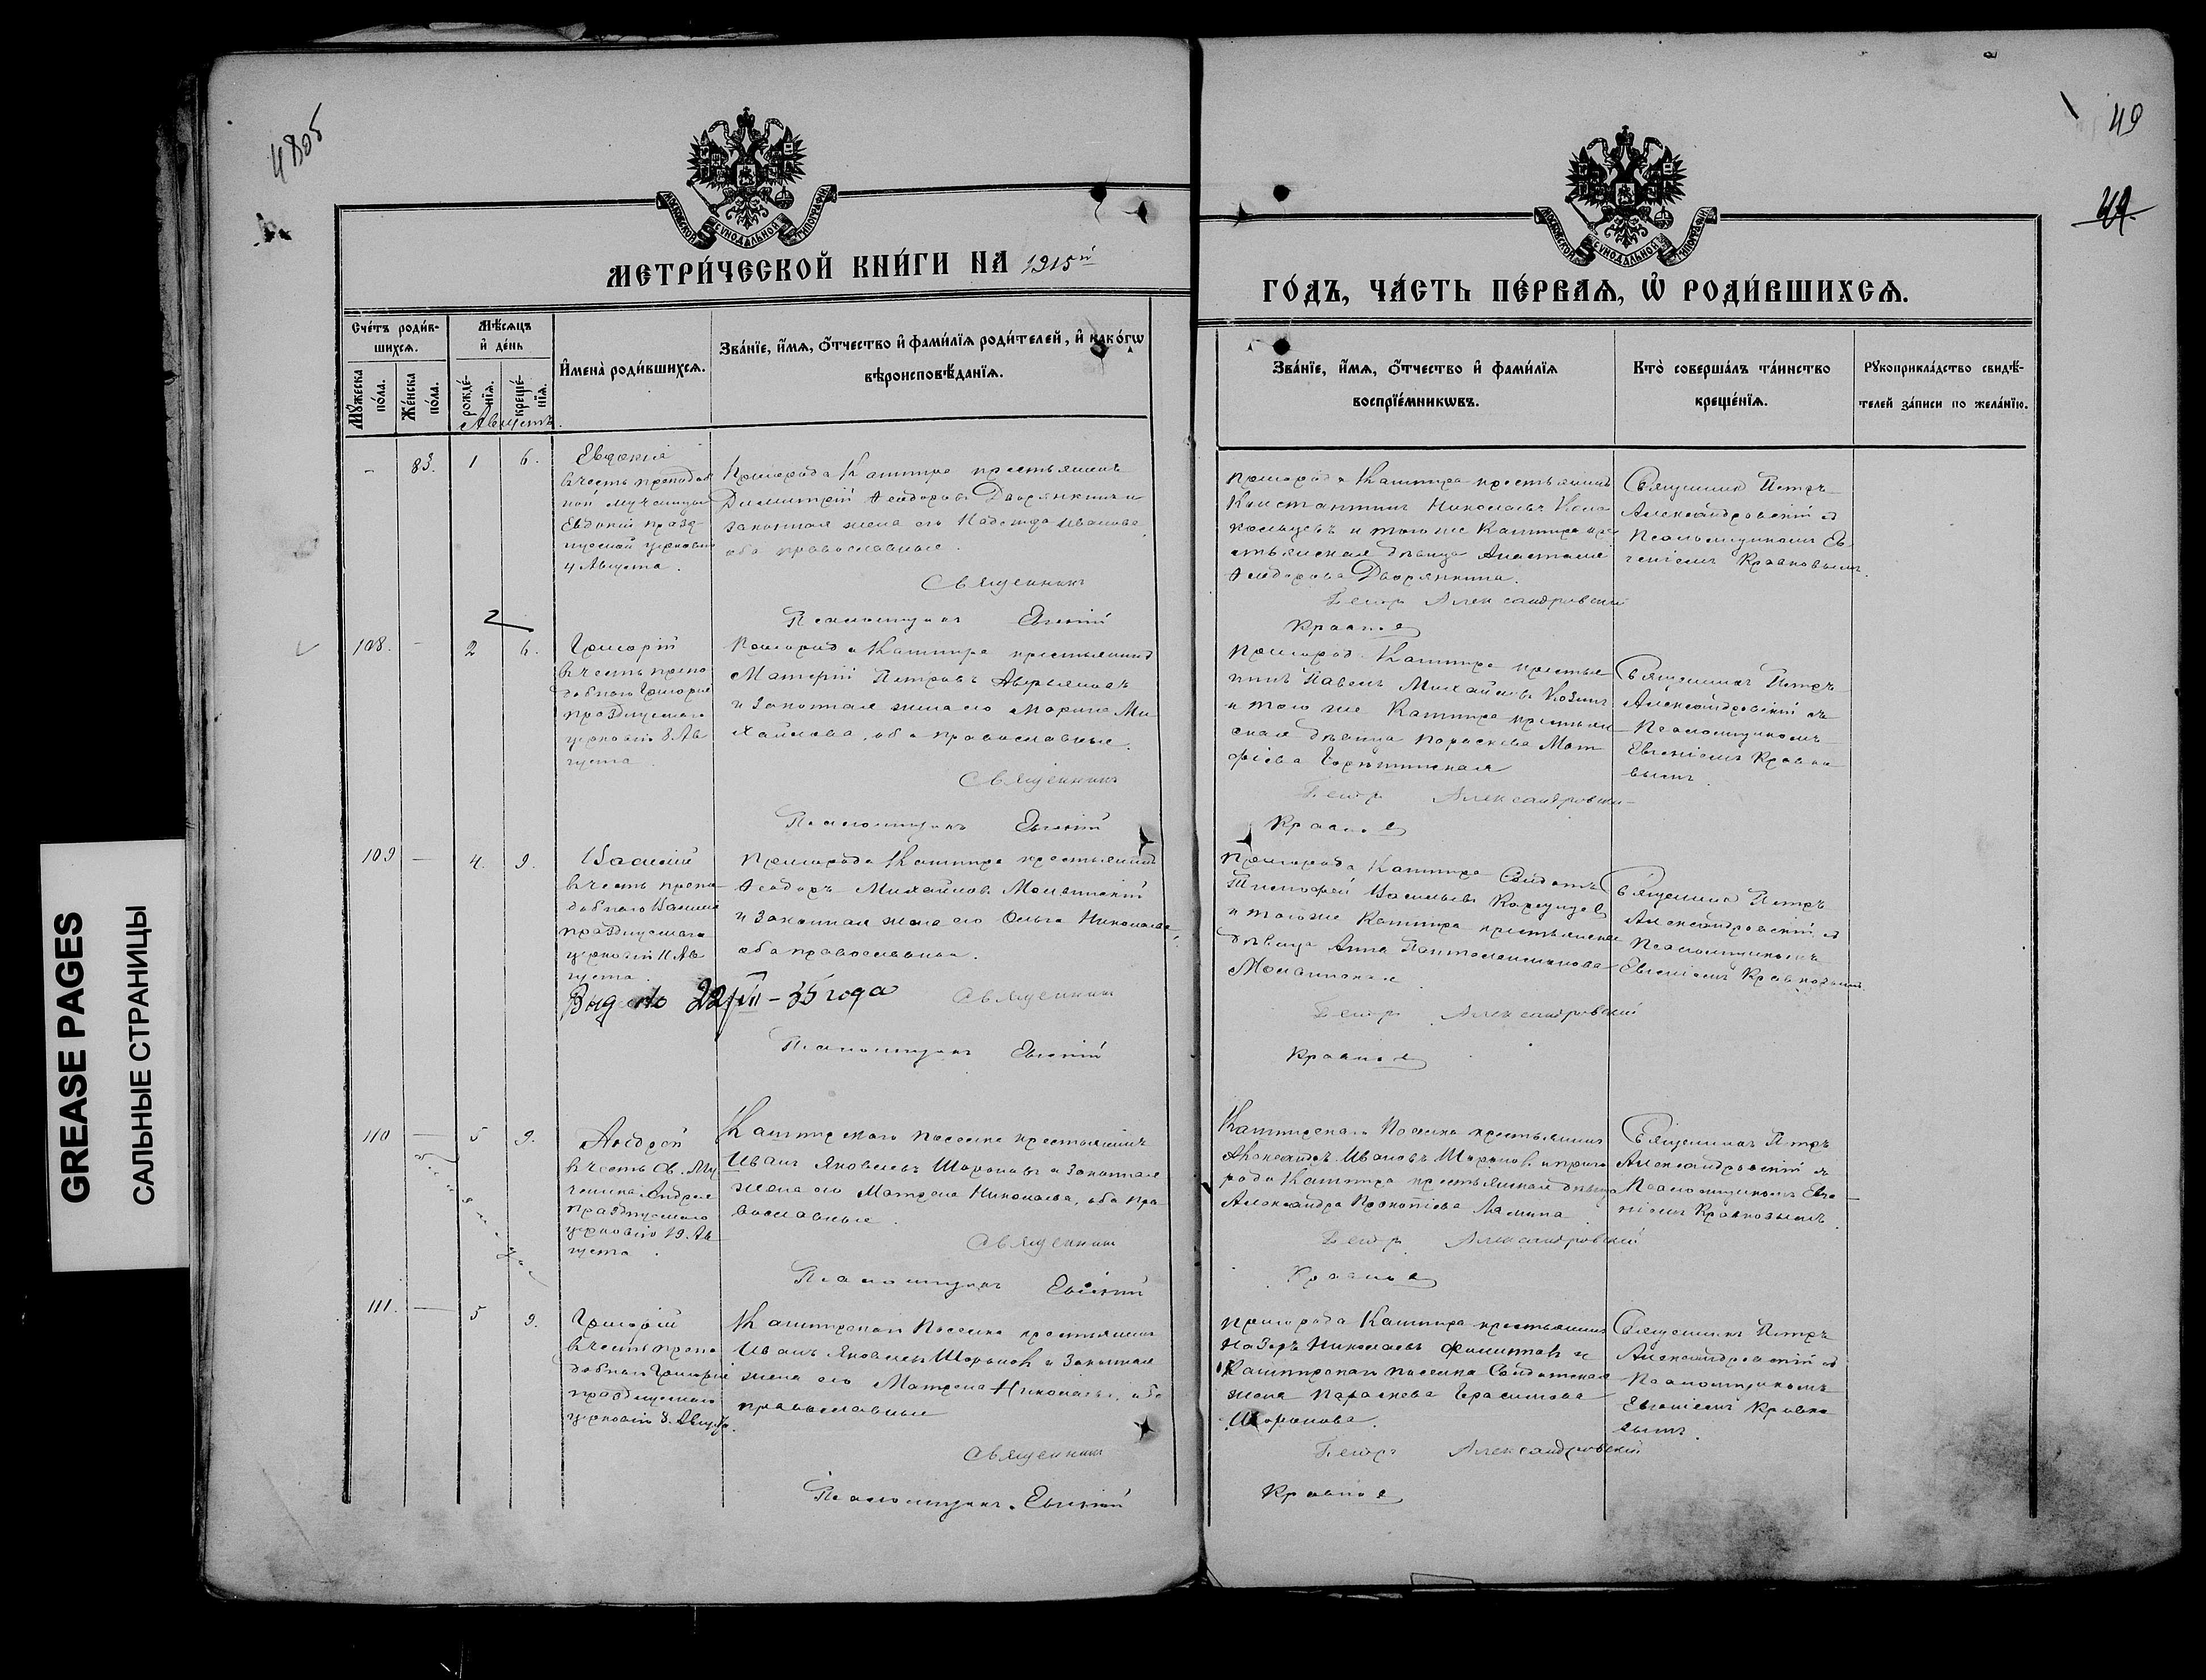 4805
49
49
МОСКОВСКОЙ СѴНОДАЛЬНОЙ ТИПОГРАФІИ
МЕТРИ́ЧЕСКОЙ КНИ́ГИ НА 1915й
МОСКОВСКОЙ СѴНОДАЛЬНОЙ ТИПОГРАФІИ
ГО́ДЪ, ЧА́СТЬ ПЕ́РВАЯ, Ѡ РОДИ́ВШИХСЯ.
Сче́тъ роди́в-
шихся.
Мꙋ́жеска
по́ла.
Же́нска
по́ла.
Мѣ́сяцъ
и де́нь
рожде́-
нїя.
креще́-
нїя.
Августъ.
Имена̀ роди́вшихся.
Зва́нїе, и́мя, о́тчество и фами́лїя роди́телей, и како́гѡ
вѣроисповѣ́данїя.
Зва́нїе, и́мя, о́тчество и фами́лїя
воспрїе́мникѡвъ.
Кто̀ соверша́лъ та́инство
креще́нїя.
Рꙋкоприкла́дство свидѣ́-
телей за́писи по жела́нїю.
– 83. 1 6.
Евдокія
въ честь преподоб
ной мученицы
Евдокіи празд
нуемой церковію
4 Августа.
Пригорода Кашпира крестьянинъ
Димитрій Ѳеодоровъ Дворянкинъ и
законная жена его Надежда Иванова
оба православные.
Священникъ
Псаломщикъ Евгеній
Пригорода Кашпира крестьянинъ
Константинъ Николаевъ
и того же Кашпира кре
стьянская дѣвица Анастасія
Ѳеодорова Дворянкина.
Петръ Александровскій
Священникъ Петръ
Александровскій съ
Псаломщикомъ Ев
геніемъ
2
108. – 2 6.
Григорій
въ честь препо
добнаго Григорія
празднуемаго
церковію 8 Ав
густа.
Пригорода Кашпира крестьянинъ
Петровъ Аверьяновъ
и законная жена его Марина Ми
хайлова, оба православные.
Священникъ
Псаломщикъ Евгеній
Пригорода Кашпира крестья
нинъ Павелъ Михайловъ
и того же Кашпира крестьян
ская дѣвица Параскева Мат
фіева
Петръ Александровскій
Священникъ Петръ
Александровскій съ
Псаломщикомъ
Евгеніемъ
109 – 4. 9.
Василій
въ честь препо
добнаго Василія
празднуемаго
церковію 11 Ав
густа.
Пригорода Кашпира крестьянинъ
Ѳеодоръ Михайловъ
и законная жена его Ольга Николаева,
оба православные.
Выдано 22/VII – 35 года
Священникъ
Псаломщикъ Евгеній
Пригорода Кашпира Солдатъ
Тимофей Васильевъ
и того же Кашпира крестьянская
дѣвица Анна Пантелеимонова
Петръ Александровскій
Священникъ Петръ
Александровскій съ
Псаломщикомъ
Евгеніемъ
110 – 5 9.
Андрей
въ честь Св. Му
ченика Андрея
празднуемаго
церковію 19 Ав
густа.
Кашпирскаго Поселка крестьянинъ
Иванъ Яковлевъ Шороновъ и законная
жена его Матрена Николаева, оба пра
вославные.
Священникъ
Псаломщикъ Евгеній
Кашпирскаго Поселка крестьянинъ
Александръ Ивановъ Шороновъ и приго
рода Кашпира крестьянская дѣвица
Александра Прокопіева
Петръ Александровскій
Священникъ Петръ
Александровскій съ
Псаломщикомъ Евге
ніемъ
111. – 5 9.
Григорій
въ честь препо
добнаго Григорія
празднуемаго
церковію 8 Августа.
Кашпирскаго Поселка крестьянинъ
Иванъ Яковлевъ Шороновъ и законная
жена его Матрена Николаева, оба
православные
Священникъ
Псаломщикъ Евгеній
Пригорода Кашпира крестьянинъ
Назаръ Николаевъ Филиповъ и
Кашпирскаго поселка Солдатская
жена Параскева Герасимова
Шоронова.
Петръ Александровскій
Священникъ Петръ
Александровскій съ
Псаломщикомъ
Евгеніемъ
GREASE PAGES
САЛЬНЫЕ СТРАНИЦЫ